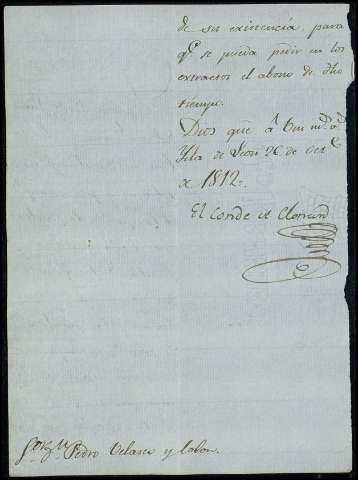 de ser existencia, para
qe. se pueda pedir en los
extractos el abono de dho
tiempo.
Dios gue á Vm ms. as.
Ysla de Leon 26 de
de 1812.
El Conde de
Sor. Dn. Pedro Velasco y